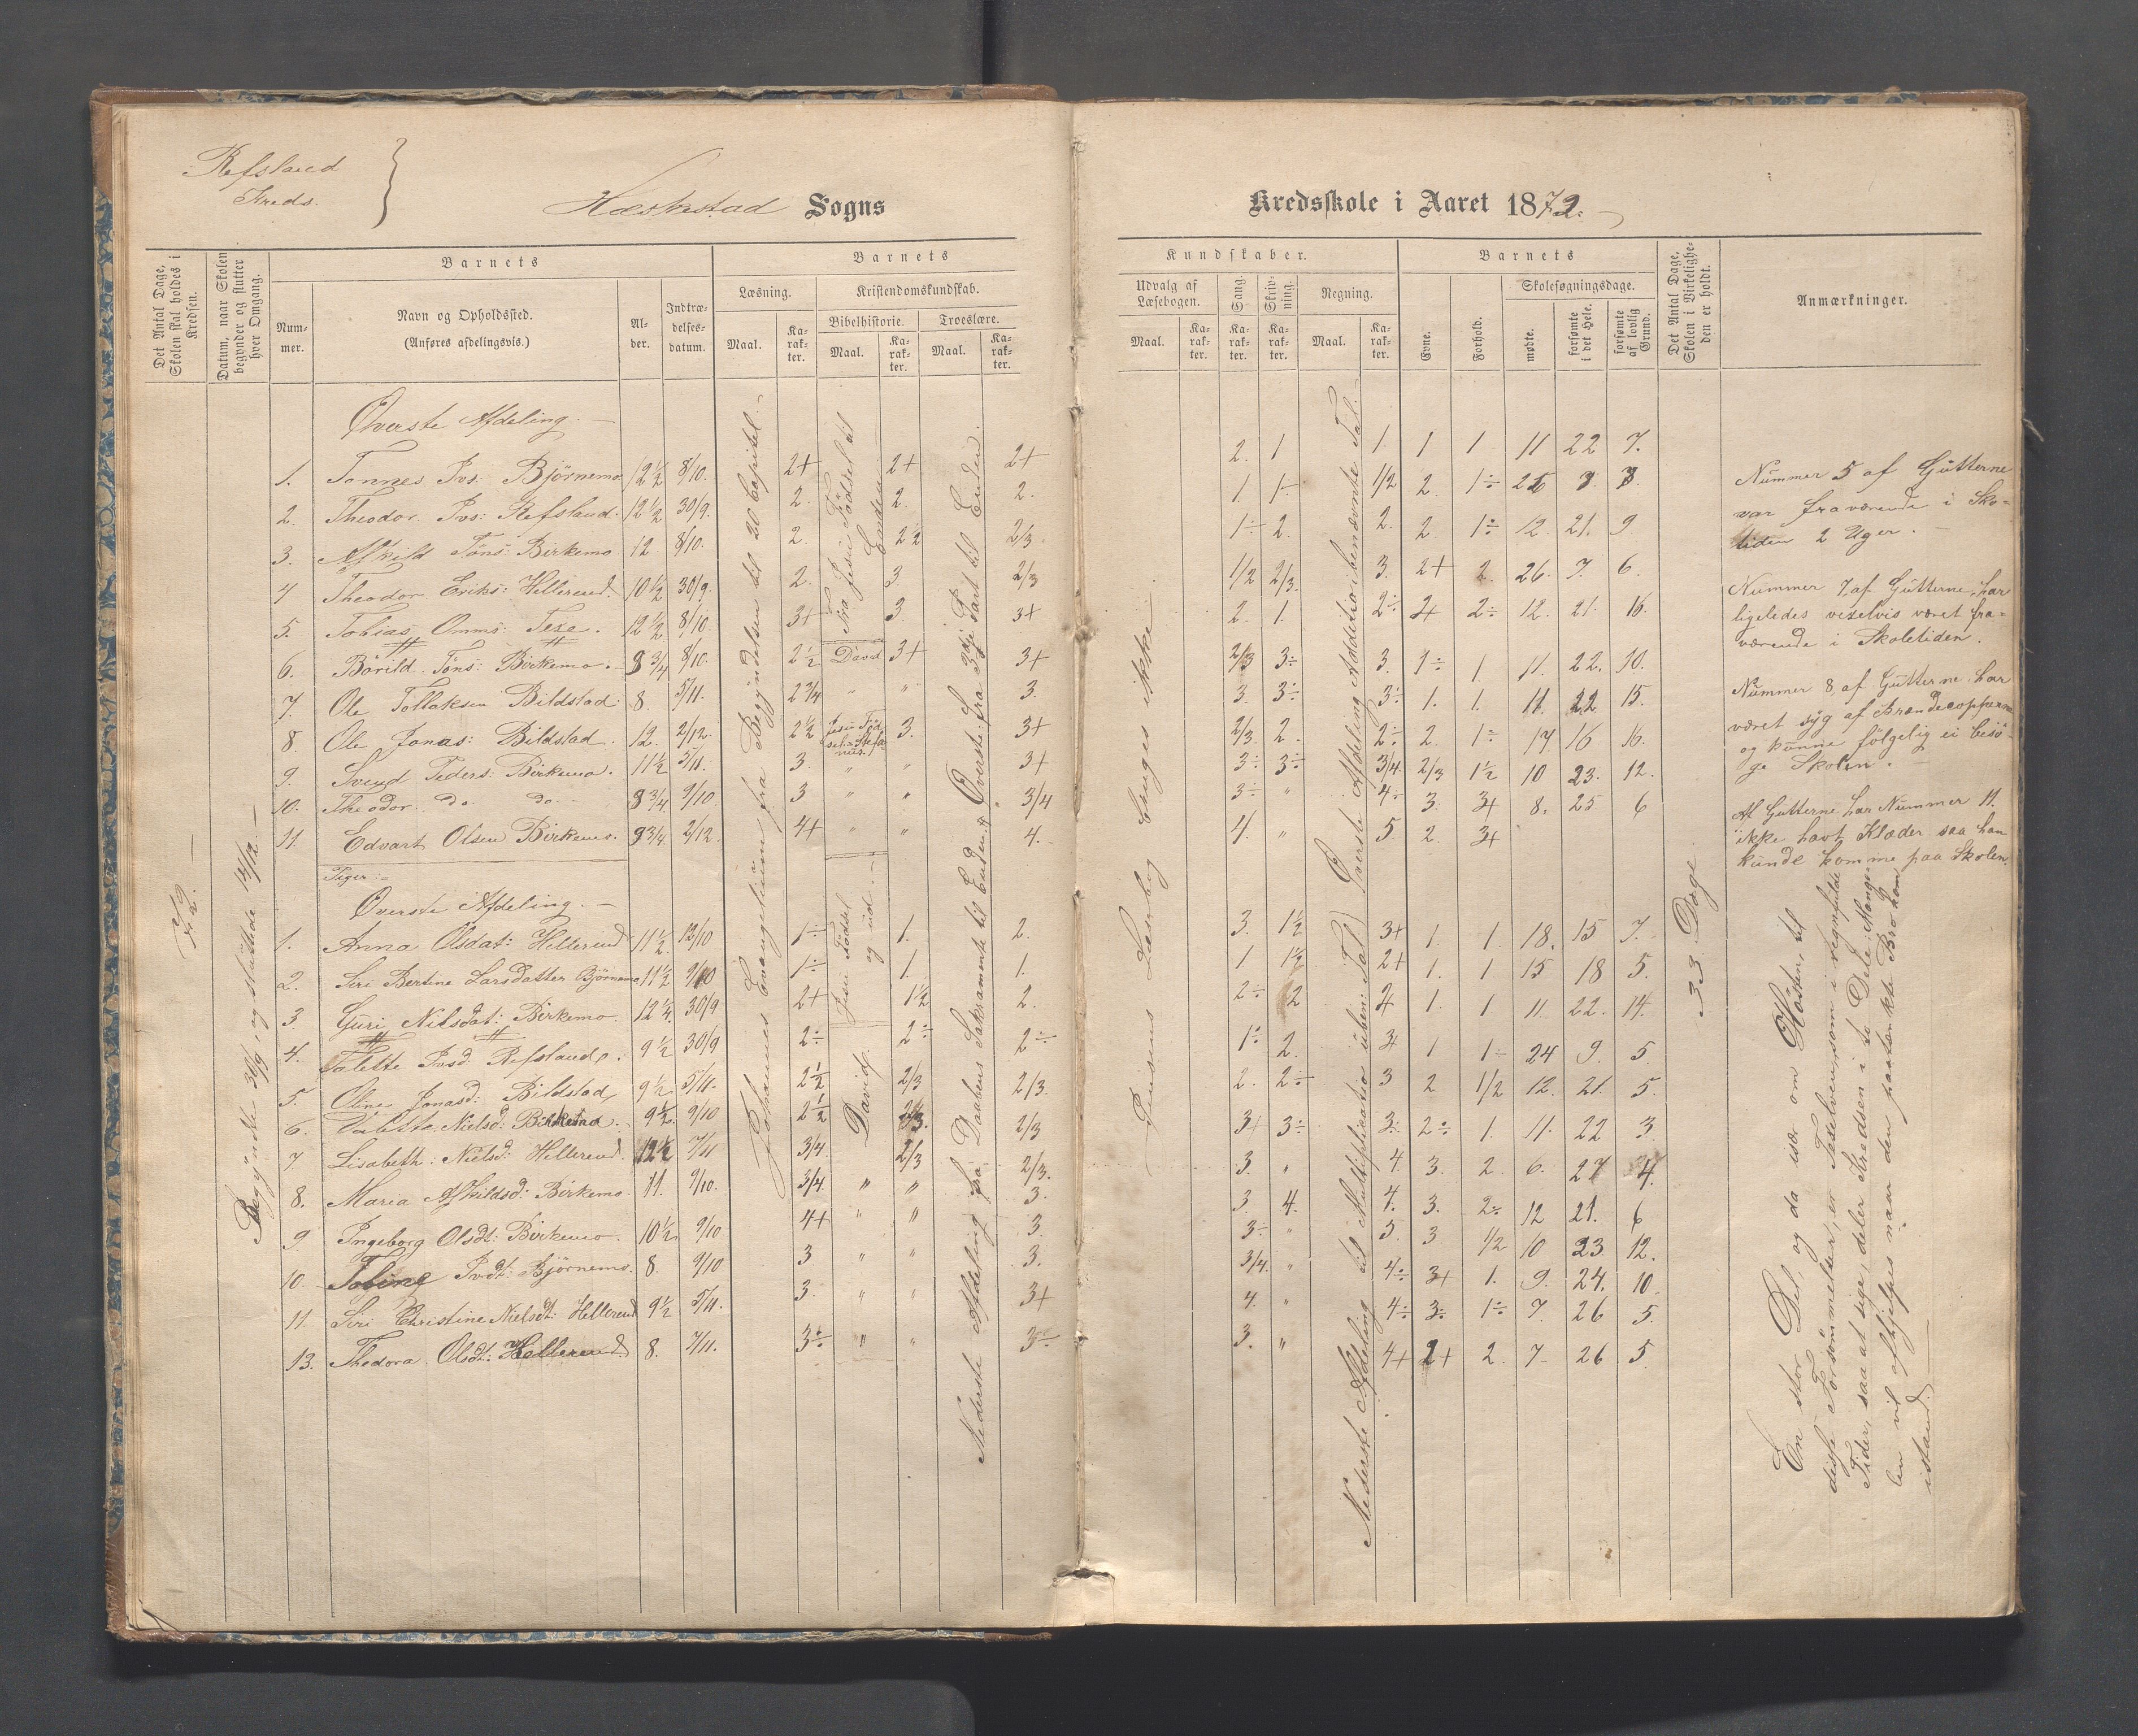 Refsland
Kreds.
Hæskestad Sogns
Kredsskole i Aaret 1872.
Det Antal Dage, Skolen skal holdes i Kredsen.
Datum, naar Skolen begynder og slutter hver Omgang.
Barnets
Num-mer.
Navn og Opholdssted.
(Anføres afdelingsvis.)
Al-der.
Indtræ-delses-datum.
Barnets
Læsning.
Kristendomskundskab.
Bibelhistorie.
Troeslære.
Maal.
Ka-rak-ter.
Maal.
Ka-rak-ter.
Maal.
Ka-rak-ter.
Kundskaber.
Udvalg af Læsebogen.
Sang.
Skriv-ning.
Regning.
Maal.
Ka-rak-ter.
Ka-rak-ter.
Ka-rak-ter.
Maal.
Ka-rak-ter.
Barnets
Evne.
Forhold.
Skolesøgningsdage.
mødte.
forsømte i det Hele.
forsømte af lovlig Grund.
Det Antal Dage, Skolen i Virkelighe-den er holdt.
Anmærkninger.
Øverste Afdeling.
1. Tønnes Ivs: Bjørnemo 12½ 8/10. 2+ 2+ 2+ 2. 1 1. 1 1 11 22 7.
2. Theodor Ivs: Refsland. 12½ 30/9. 2. 2. 2. 1 1÷ 1/2 2. 1÷
3. Askild Töns: Birkemo 12. 8/10. 2. 2/3 1÷ 2. 2. 2. 1÷ 12. 21. 9.
4 Theodor Eriks: Hellerend. 10½ 30/9. 2. 3. 2/3 1/2 2/3. 3. 2+ 2. 26. 7. 6.
5. Tobias Omms: Texe. 12½ 8/10. 3+ 3. 3+ 2. 1. 2÷ 2+ 2÷ 12. 21. 16.
6. Börild Töns: Birkemo. 8¾ 8/10. 2½ David 3+ 3+ 2/3 3÷ 3. 1÷ 1. 11. 22. 10.
7. Ole Tollaksen Bildstad 8. 5/11. 2¾ " " 3. 3. 3÷ 3÷ 1. 1. 11. 22 15.
8. Ole Jonas: Bildstad. 12. 2/12. 2½ 3. 3+ 2/3. 2. 2÷ 2. 1÷ 17 16 16.
9. Svend Peders: Birkemo. 11½ 5/11. 3. " " 3+ 3÷ 3÷ 3/4. 2/3 1½ 10 23. 12.
10. Theodor. do do 8¾ 9/10. 3 " " 3/4 3÷ " 4÷ 3. 3+ 8. 25 6
11. Edvart Olsen Birkemo. 9¾. 2/12. 4+ " " 4. 4. " 5 2. 3+
Piger:
Øverste Afdeling.
1. Anna Olsdat: Hellerend 11½. 12/10 1÷ 1. 2. 3. 1½ 3+ 1. 1. 18. 15 7.
2. Siri Bertine Larsdatter Bjørnemo 11½ 9/10 1÷ 1. 1. 1 1½ 2+ 1. 1 15 18 5.
3. Guri Nilsdat: Birkemo. 12¼. 30/9 2+ 1½ 2. 2÷ 2 1. 1 11. 22. 14.
4. Talette Ivsd. Refsland. 9½ 30/9 2÷ 2÷ 2÷ 1÷ 2. 1 1÷ 24 9. 5.
5. Oline Jonasd: Bildstad, 9½ 5/11. 2½ 2/3 2/3. 2. 2÷ 3 2 1/2 12. 21. 5.
6. Valette Nielsd: 9½. 9/10 2½ 2/3. 2/3 3+ 3÷ 3÷ 2÷ 1. 11. 22 3.
7. Lisabeth: Nielsd: Hellerend. 7/11 3/4. 2/3 2/3. 3. " 4. 3. 2. 6. 27 4.
8. Maria Askildsd: Birkemo 11. 9/10. 3/4. " " 3. 3. 4. 4. 3. 2÷ 12 21. 6
9. Ingeborg Olsdt: Birkemo. 10½ 9/10 4+ " " 3. 3÷ " 5. 3. 1/2 10 23 12.
10. Tobine Ivdt: Bjørnemo. 8. 9/10 3 " " 3. 3/4. " 4÷ 3+ 1. 9. 24. 10.
11. Siri Christine Nielsdt: Hellerend 9½ 5/11. 3. " " 3+ 4. " 4÷ 3÷ 1÷ 7. 26 5.
13. Thedora Olsdt: Hellerend 8. 7/11. 3÷ " " 3÷ 3. " 4+ 2+ 2. 7- 26 5.
72.
Begyndte 30/9, og sluttede 14/12.
Johannes Evangelium fra Begyndelsen til 20 Capitel.
Fra Jesu Fødsel til Enden
Jesu Fødsel og ud.
David.
Øverste: fra 3die Part til Enden.
Nederste Afdeling fra Daabens Sakramente til Enden.
Jensens Læsebog bruges ikke
Øverste Afdeling Addition i benævnte Tal.
Nederste Afdeling til Multiplikation i uben: Tal
33 Dage
Nummer 5 af Gutterne
var fraværende i Sko-
tiden 2 Uger.
Nummer 7, af Gutterne, har
ligeledes vexelvis været fra-
værende i Skoletiden.
Nummer 8, af Gutterne har
været syg af Brandecopperne
og kunne følgelig ei besö-
ge Skolen.
Af Gutterne har Nummer 11.
ikke havt Klæder saa han
kunde komme paa Skolen.
En stor Del, og da især om Høsten, til
disse Forsömmelser, er Texelven, som i regnfulde
Tider, saa at sige, deler Kredsen i to Dele. Mange-
len vil afhjelpes naar den paatænkte Bro kom
istand.